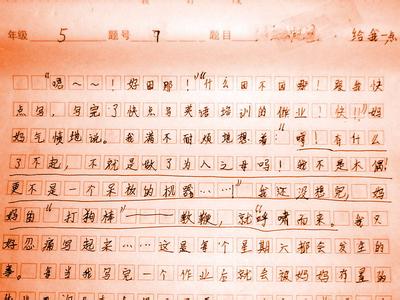 年级 5 题号 7 题目 给我一点
“唔～～！好困那！”“什么困不困那！跟我快
点写，写完了快点写英语培训的作业！快！”妈
妈气愤地说。我满不耐烦地想着：“哼！有什么
了不起，不就是做了为人之母吗！我不是木偶，
更不是一个呆板的机器……”我还没想完，妈
妈的“打狗棒”——教鞭，就呼啸而来。我只
好忍痛写起来……这是每个星期六都会发生的
事。每当我写完一个作业后就会被妈妈有